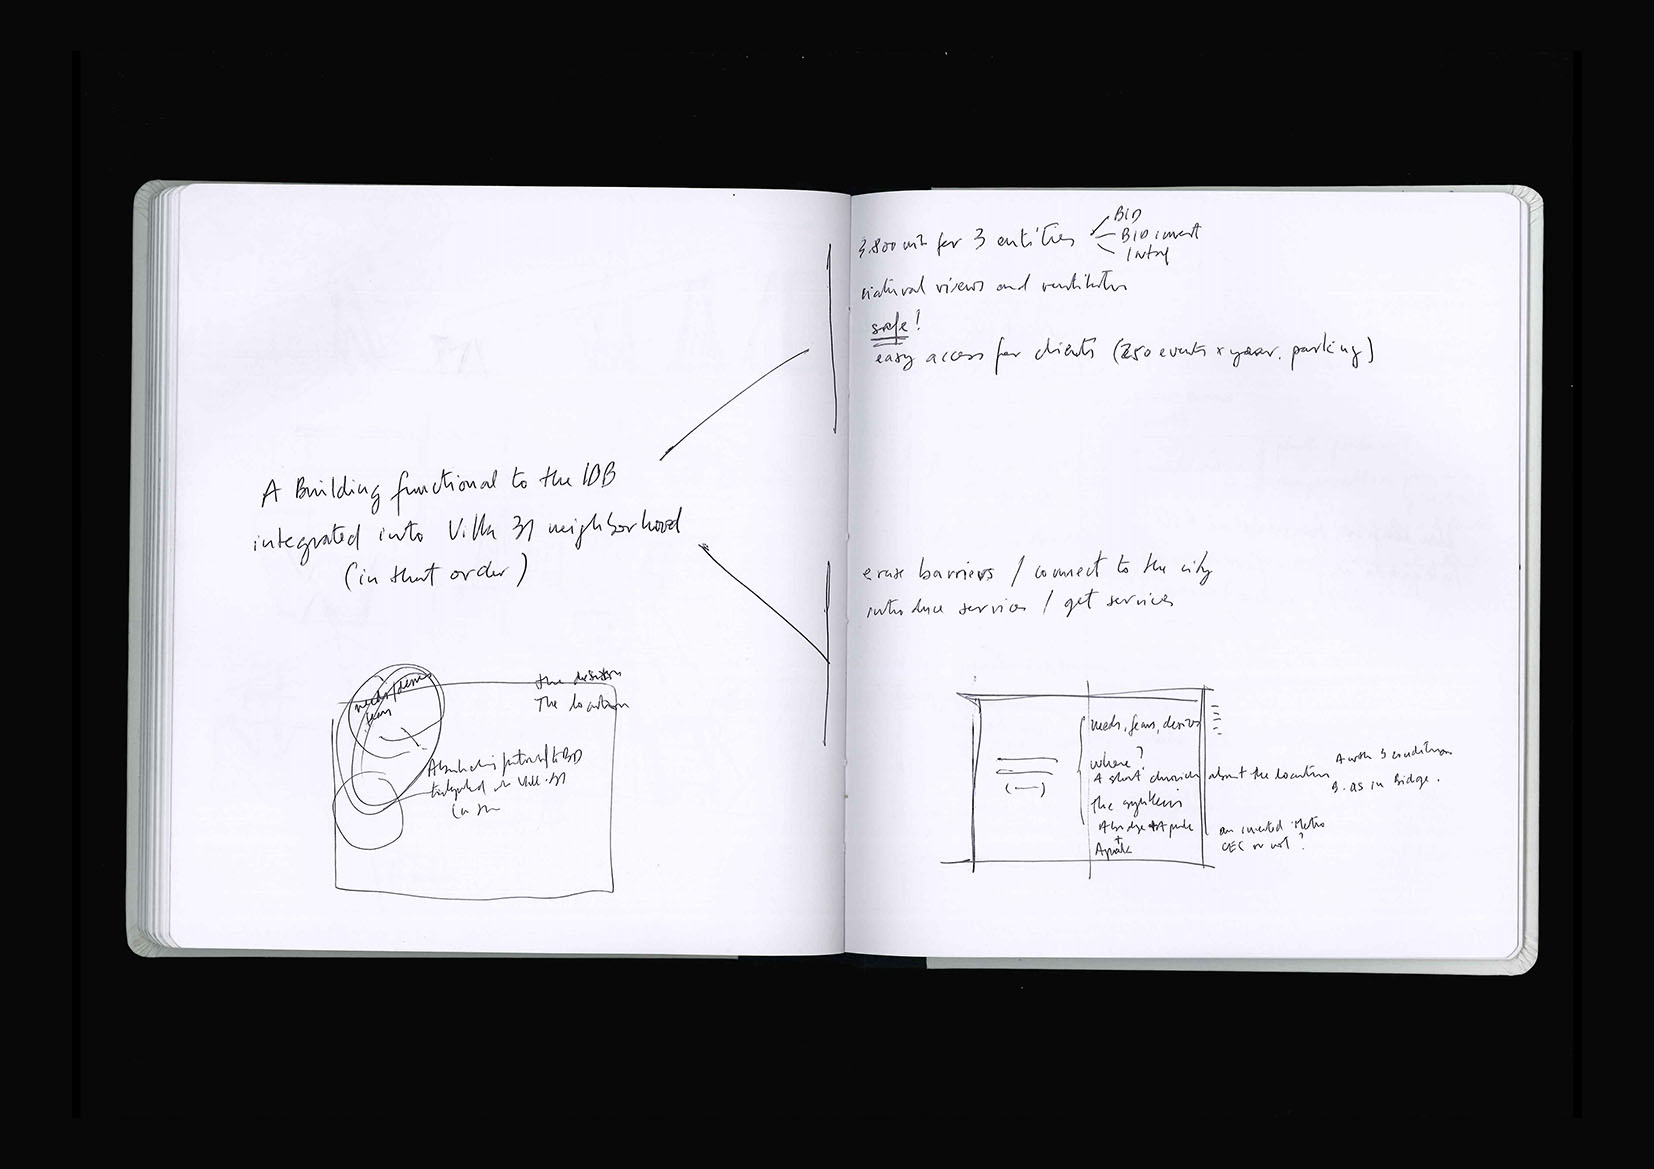 A Building functional to the IDB
integrated into Villa 31 neighborhood
(in that order)
the
The location
needs/desires
fears
A building functional to BID
integrated in Villa 31
(in
3.800 m² for 3 entities
BID
BID invest
Intal
natural views and ventilation
safe!
easy access for clients (250 events x year, parking)
erase barriers / connect to the city
introduce services / get services
needs, fears, desires
where?
A short about the location
the
A bridge + A park
+
A park
A with 3 conditions
B. as in Bridge.
an inverted Metro
or not?